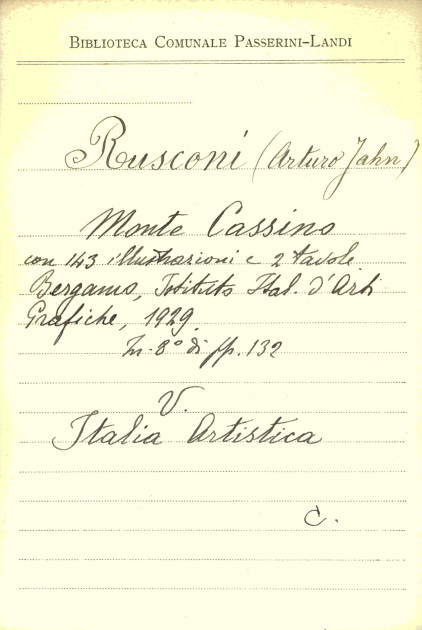 BIBLIOTECA COMUNALE PASSERINI-LANDI
Rusconi (Arturo Jahn)
Monte Cassino
con 143 illustrazioni e 2 tavole
Bergamo, Istituto Ital. d'Arti
Grafiche, 1929.
In-8° di pp. 132
V.
Italia Artistica
C.